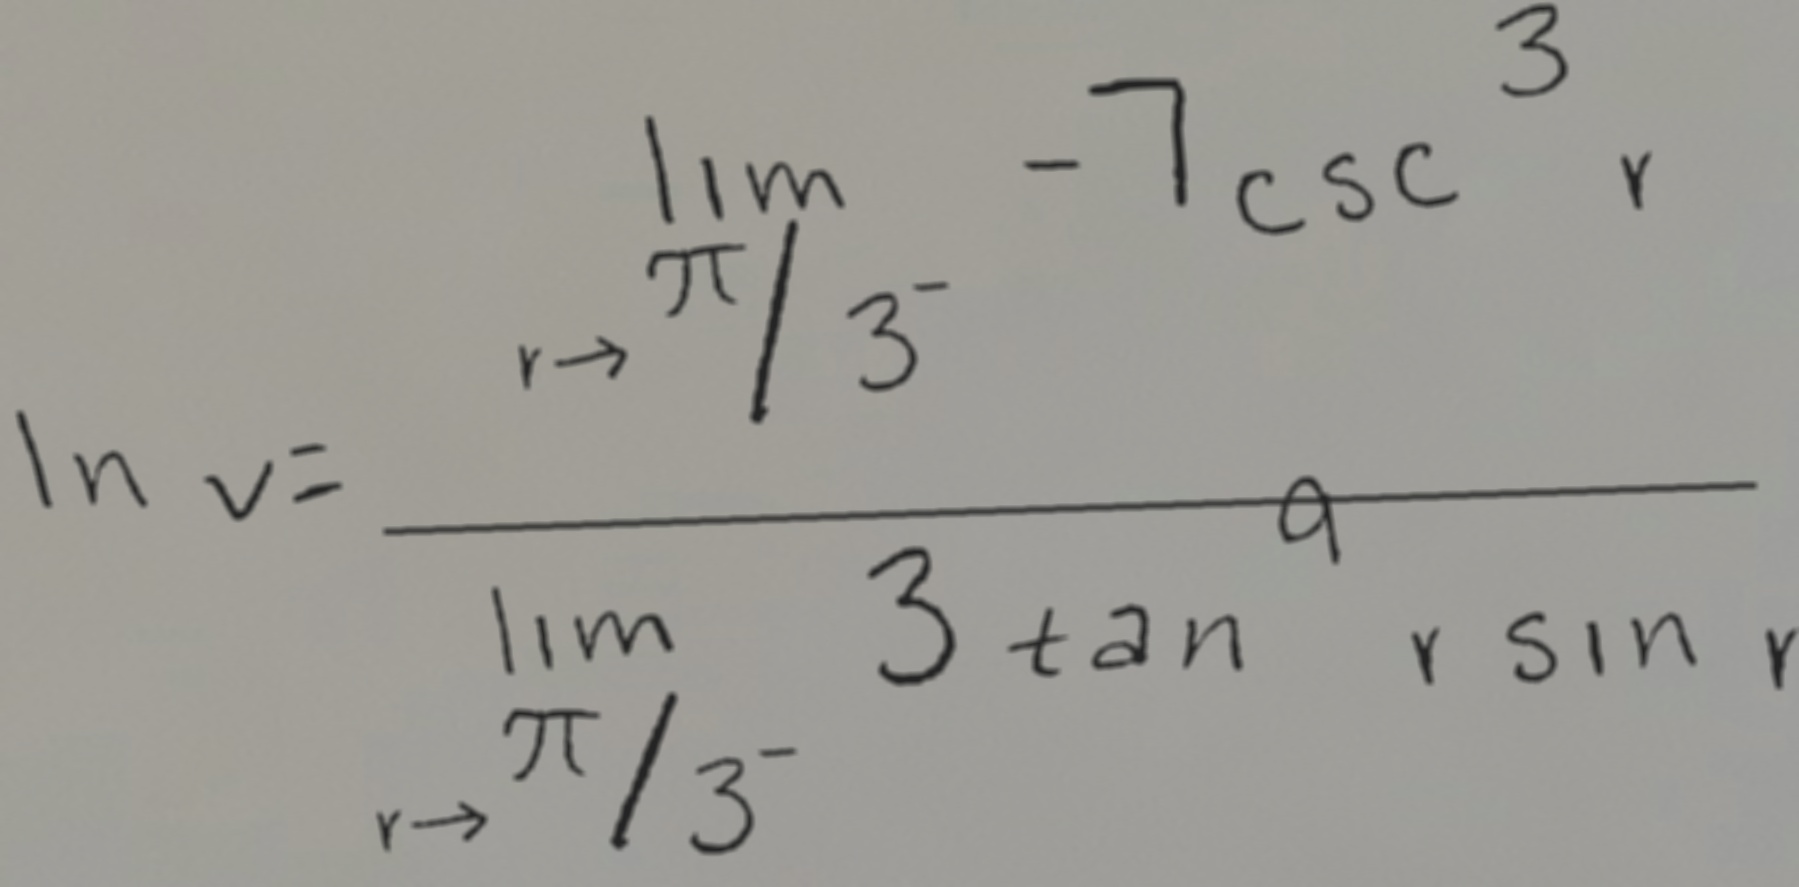 ln v = \frac{\lim_{r \to \pi/3^-} -7 \csc^3 r}{\lim_{r \to \pi/3^-} 3 \tan^9 r \sin r}